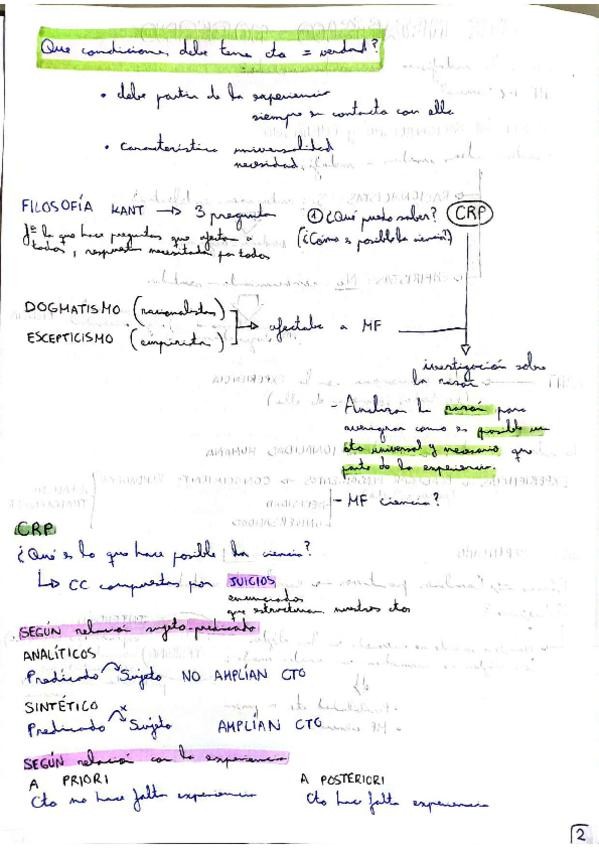 Que condiciones debe tener cto = verdad?
• debe partir de la experiencia
siempre en contacto con ella
• Característica universalidad
necesidad
FILOSOFÍA KANT → 3 preguntas
fª lo que hace preguntas que afectan a
todos, respuestas necesitadas por todos
① ¿Qué puedo saber? CRP
(¿Cómo es posible la ciencia?)
DOGMATISMO (racionalistas)
ESCEPTICISMO (empirista)
→ afectaba a MF
investigación sobre
la razón
- Analizar la razón para
averiguar como es posible un
cto universal y necesario que
parte de la experiencia.
- MF ciencia?
CRP
¿Qué es lo que hace posible la ciencia?
↳ CC compuestos por JUICIOS
enunciados
que estructuran nuestros ctos
SEGÚN relación sujeto-predicado
ANALÍTICOS
Predicado Sujeto NO AMPLÍAN CTO
SINTÉTICO
Predicado x Sujeto AMPLÍAN CTO
SEGÚN relación con la experiencia
A PRIORI
Cto no hace falta experiencia
A POSTERIORI
Cto hace falta experiencia
2